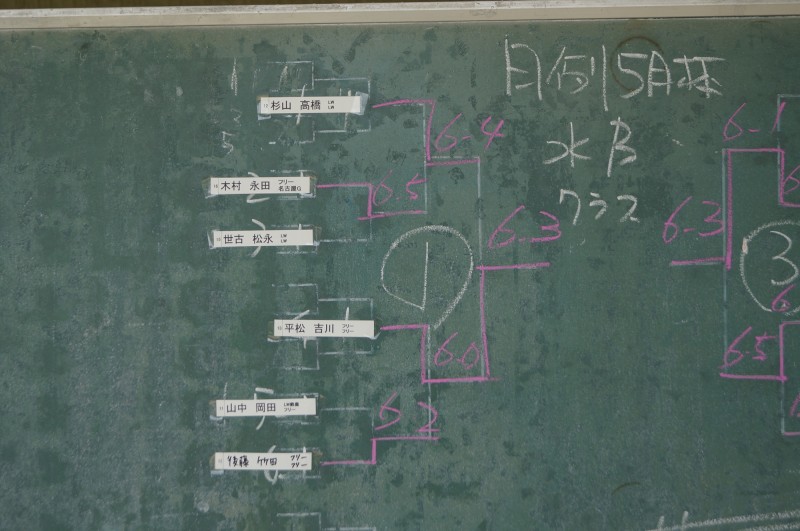 月例 5月杯
水 B
クラス
杉山 高橋 LW LW
6-4
木村 永田 フリー 名古屋G
6.5
世古 松永 LW LW
6-3
①
平松 吉川 フリー フリー
6.0
山中 岡田 フリー
後藤 竹田 フリー フリー
6-1
6-3
3
6-5